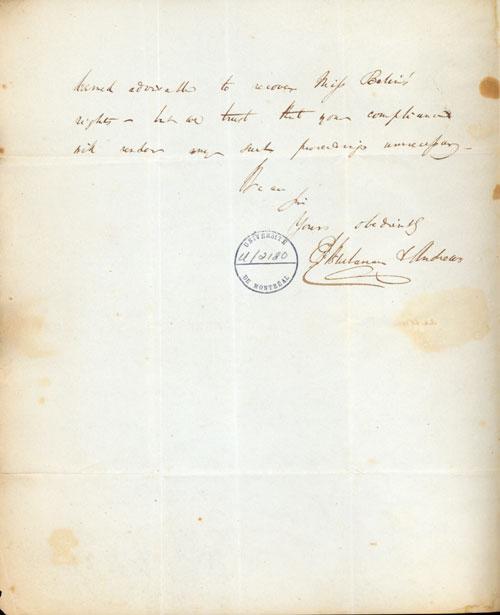 deemed advisable to recover Miss
rights – but we trust that your compliance
will render any such proceedings unnecessary –
We are
Sir
Yours obediently
Buchanan & Andrews
UNIVERSITÉ
U/2180
DE MONTRÉAL